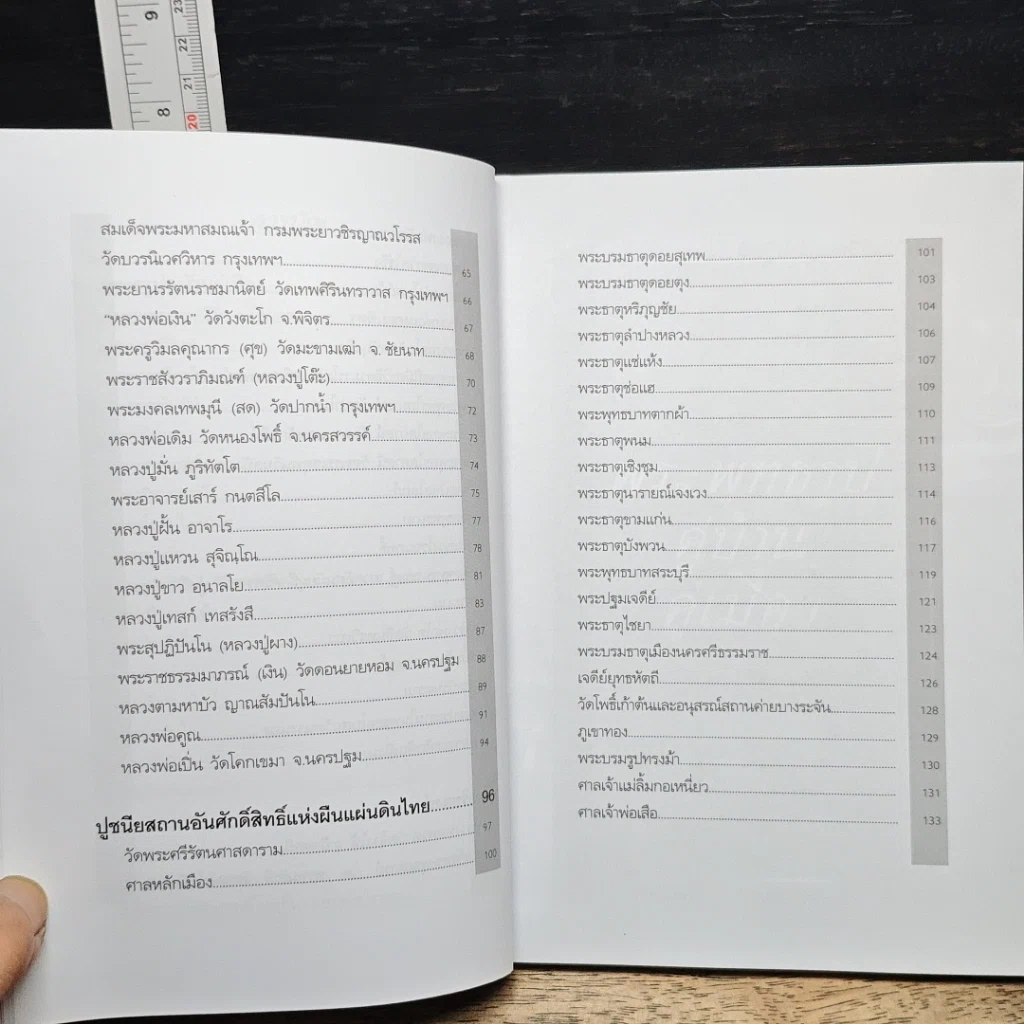 9
8
23
22
21
20
สมเด็จพระมหาสมณเจ้า กรมพระยาวชิรญาณวโรรส
วัดบวรนิเวศวิหาร กรุงเทพฯ 65
พระยานรรัตนราชมานิตย์ วัดเทพศิรินทราวาส กรุงเทพฯ 66
“หลวงพ่อเงิน” วัดวังตะโก จ.พิจิตร 67
พระครูวิมลคุณากร (ศุข) วัดมะขามเฒ่า จ. ชัยนาท 68
พระราชสังวราภิมณฑ์ (หลวงปู่โต๊ะ) 70
พระมงคลเทพมุนี (สด) วัดปากน้ำ กรุงเทพฯ 72
หลวงพ่อเดิม วัดหนองโพธิ์ จ.นครสวรรค์ 73
หลวงปู่มั่น ภูริทัตโต 74
พระอาจารย์เสาร์ กนตสีโล 75
หลวงปู่ฝั้น อาจาโร 77
หลวงปู่แหวน สุจิณโณ 78
หลวงปู่ขาว อนาลโย 81
หลวงปู่เทสก์ เทสรังสี 83
พระสุปฏิปันโน (หลวงปู่ผาง) 87
พระราชธรรมมาภรณ์ (เงิน) วัดดอนยายหอม จ.นครปฐม 88
หลวงตามหาบัว ญาณสัมปันโน 89
หลวงพ่อคูณ 91
หลวงพ่อเปิ่น วัดโคกเขมา จ.นครปฐม 94
ปูชนียสถานอันศักดิ์สิทธิ์แห่งผืนแผ่นดินไทย 96
วัดพระศรีรัตนศาสดาราม 97
ศาลหลักเมือง 100
พระบรมธาตุดอยสุเทพ 101
พระบรมธาตุดอยตุง 103
พระธาตุหริภุญชัย 104
พระธาตุลำปางหลวง 106
พระธาตุแช่แห้ง 107
พระธาตุช่อแฮ 109
พระพุทธบาทตากผ้า 110
พระธาตุพนม 111
พระธาตุเชิงชุม 113
พระธาตุนารายณ์เจงเวง 114
พระธาตุขามแก่น 116
พระธาตุบังพวน 117
พระพุทธบาทสระบุรี 119
พระปฐมเจดีย์ 121
พระธาตุไชยา 123
พระบรมธาตุเมืองนครศรีธรรมราช 124
เจดีย์ยุทธหัตถี 126
วัดโพธิ์เก้าต้นและอนุสรณ์สถานค่ายบางระจัน 128
ภูเขาทอง 129
พระบรมรูปทรงม้า 130
ศาลเจ้าแม่ลิ้มกอเหนี่ยว 131
ศาลเจ้าพ่อเสือ 133